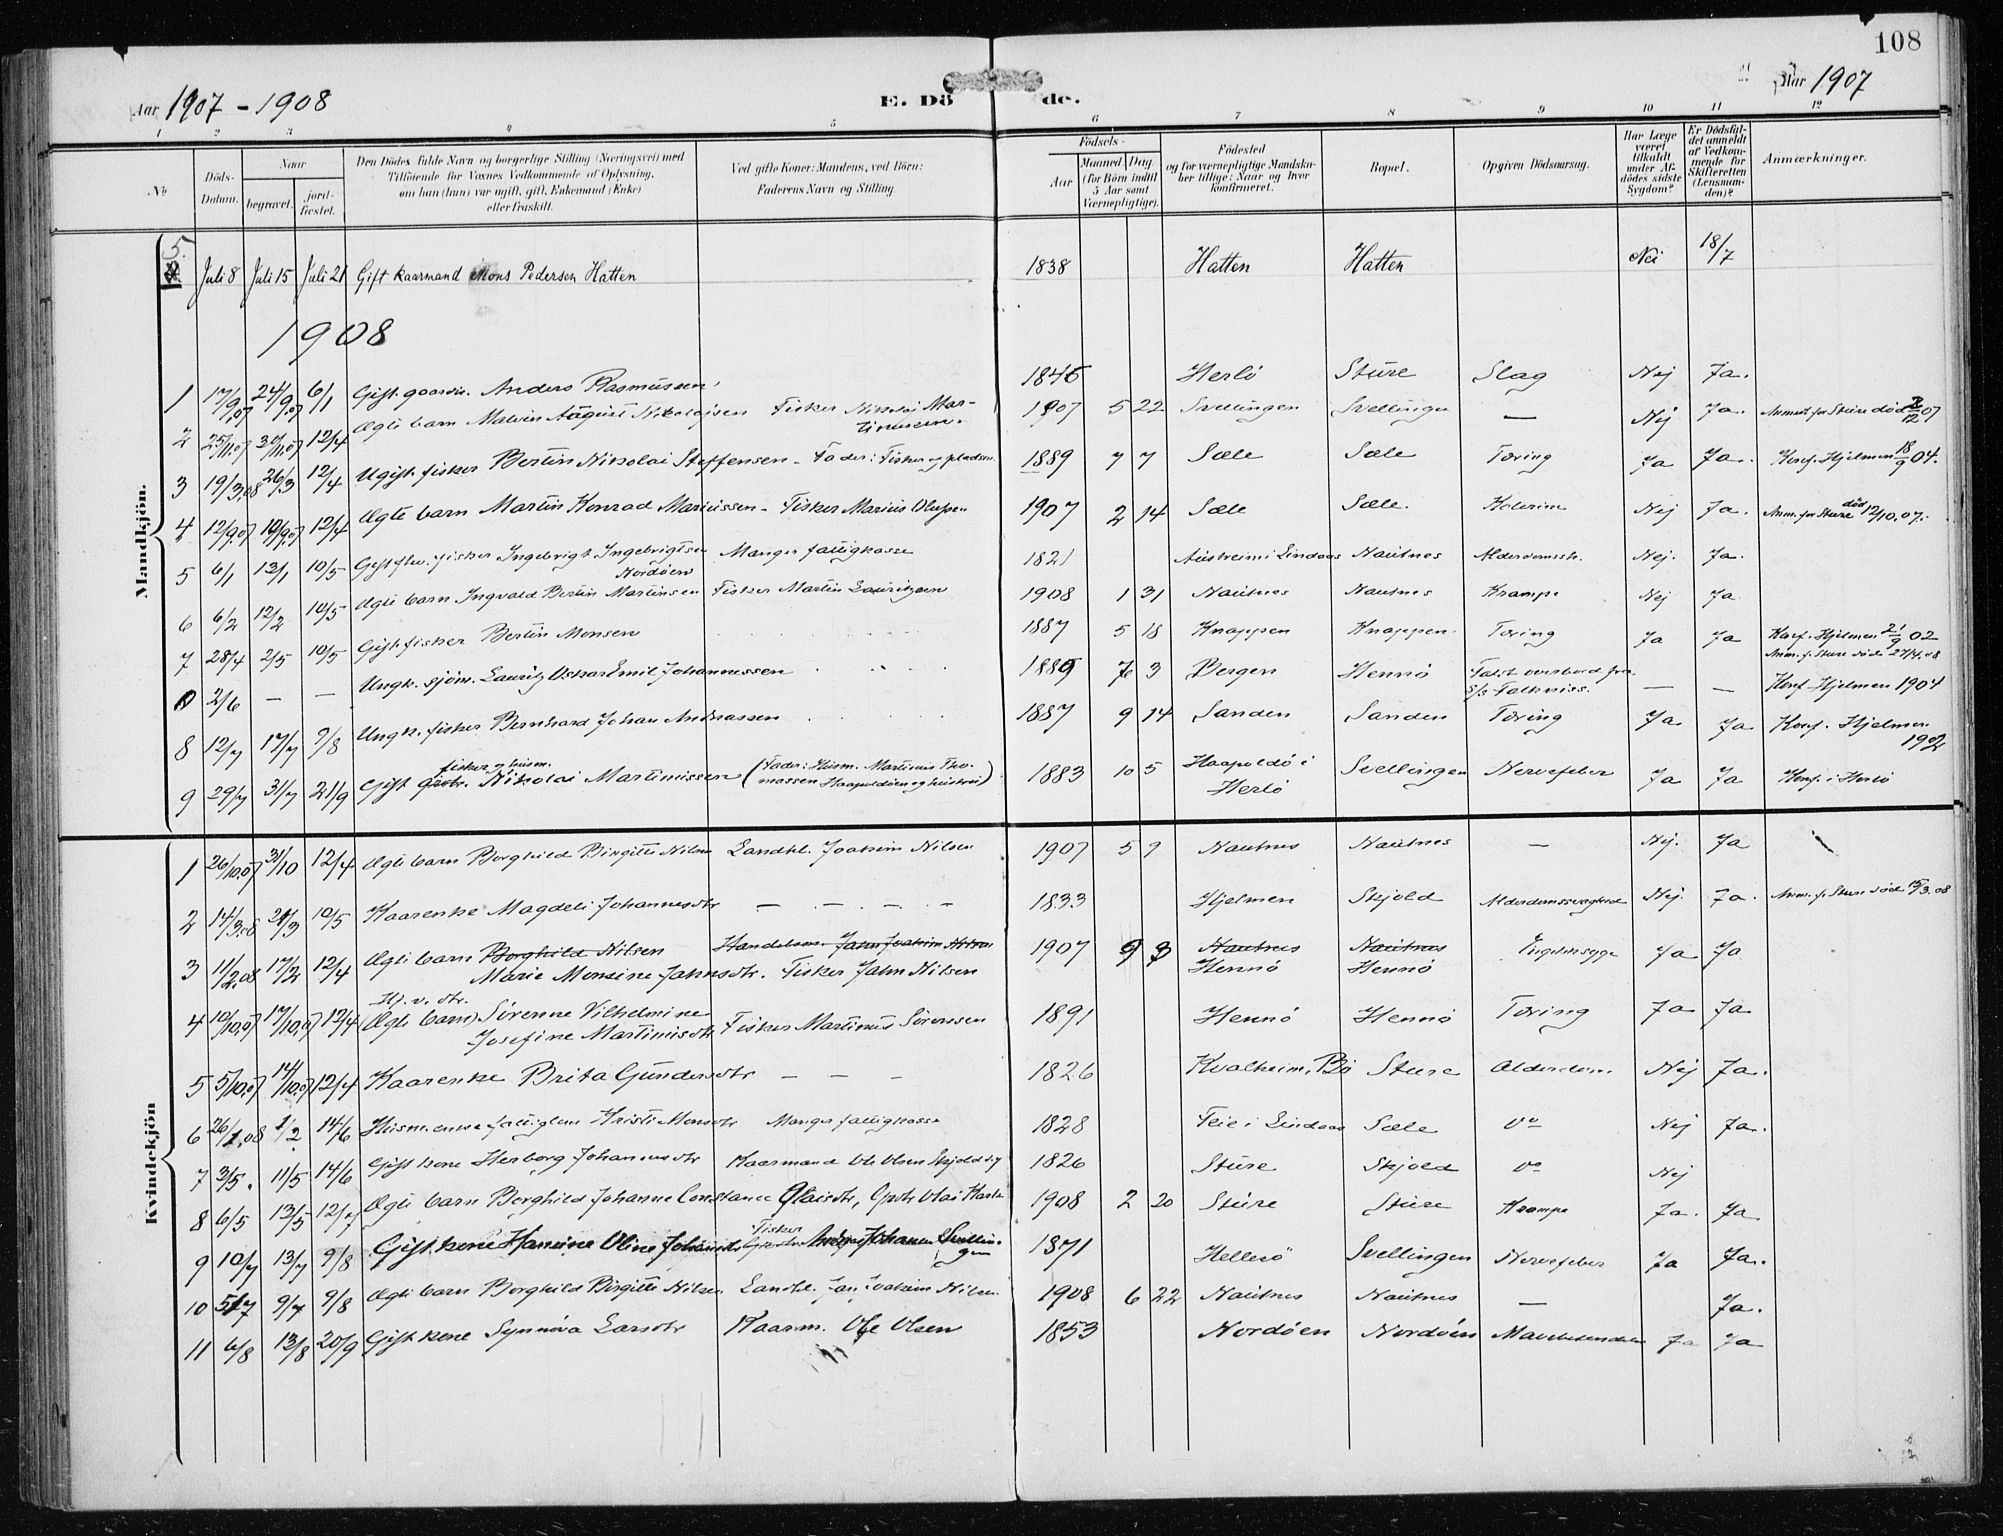 108
Aar 1907 - 1908 E. Dö de. Aar 1907
1 2 3 4 5 6 7 8 9 10 11 12
No Döds-Datum. Naar begravet. jord-fæstet. Den Dödes fulde Navn og borgerlige Stilling (Næringsvei) med Tilföiende for Voxnes Vedkommende af Oplysning, om han (hun) var ugift, gift, Enkemand (Enke) eller fraskilt. Ved gifte Koner: Mandens, ved Börn: Faderens Navn og Stilling Födsels- Aar Maaned Dag (for Börn indtil 5 Aar samt Værnepligtige). Födested og for værnepligtige Mandskaber tillige: Naar og hvor konfirmeret. Bopæl. Opgiven Dödsaarsag. Har Læge været tilkaldt under Afdödes sidste Sygdom? Er Dödsfaldet anmeldt af Vedkommende for Skifteretten (Lensmanden)? Anmærkninger.
Mandkjön.
5. Juli 8 Juli 15 Juli 21 Gift kaarmand Mons Pedersen Hatten 1838 Hatten Hatten Nei 18/7
1908
1 17/9.07 24/9.07 6/1 Gift. gaardm. Anders Rasmussen 1845 Herlö Sture Slag Nej Ja.
2 25/11.07 12/4 Ægte barn Malvin August Nikolajsen Fisker Nikolai Martinussen. 1907 5 22 Svellingen Svellingen — Nej Ja. Anmeldt for Sture död 07
3 19/3.08 26/3 12/4 Ugift fisker Bertin Nikolai Steffensen - Fader: Fisker og pladsm. 1889 7 7 Sæle Sæle Tæring Ja Ja. Konf. Hjelmen 18/9 04.
4 12/9.07 19/9.07 12/4 Ægte barn Martin Konrad Mariussen - Fisker Marius Olufsen 1907 2 14 Sæle Sæle. Kolerine Nej Ja. Anm. for Sture död 12/10.07.
5 6/1 13/1 10/5 Gift fhv. fisker Ingebrigt Ingebrigtsen Nordöen Manger fattigkasse 1821 Austreim i Lindaas Nautnes Alderdomsstr. Nej. Ja.
6 6/2 12/2 10/5 Ægte barn Ingvald Bertin Martinsen Fisker Martin Lauritzen 1908 1 31 Nautnes Nautnes Krampe Nej Ja
7 28/4 2/5 10/5 Gift fisker Bertin Monsen 1887 5 18 Knappen Knappen. Tæring Ja Ja Konf. Hjelmen 21/9 02 Anm. f. Sture död 27/4.08
0 2/6 — — Ungk. sjöm. Lauritz Oskar Emil Johannessen 1885 7 3 Bergen Hennö Faldt overbord fra S/s Falkniss. — — Konf Hjelmen 1904
8 12/7 17/7 9/8 Ungk. fisker Bernhard Johan Andreassen 1887 9 14 Sanden Sanden Tæring Ja. Ja Konf. Hjelmen 1902
9 29/7 31/7 21/9 Gift fisker og husm. Nikolai Martinussen (Fader: Husm. Martinus Thomassen Haapoldöen og hustru) 1883 10 5 Haapoldö i Herlö Svellingen Nervefeber Ja Ja Konf. i Herlö
Kvindekjön
1 26/10.07 31/10 12/4 Ægte barn Borghild Birgitte Nilsen Landhl. Joakim Nilsen 1907 5 9 Nautnes Nautnes — Nej. Ja
2 14/3.08 21/3 10/5 Kaarenke Magdeli Johannesdtr — — — — 1833 Hjelmen Skjold Alderdomssvaghed Nej. Ja. Anm. f. Sture död 15/3.08
3 11/2.08 17/2 12/4 Ægte barn Borghild Nilsen Handelsm. Jahn Joakim Nilsen 1907 9 3 Nautnes Nautnes Ja Ja
Marie Monsine Jahnsdtr. Fisker Jahn Nilsen Hennö Hennö
4 10/10.07 17/10.07 12/4 Hj. v. dtr. (Ægte barn) Sörenne Vilhelmine Josefine Martinusdtr Fisker Martinus Sörenssen 1891 Hennö Hennö Tæring Ja Ja
5 5/10.07 14/10.07 12/4 Kaarenke Brita Gundersdtr — — — 1826 Kvalheim, Bö Sture Alderdom. Nej Ja.
6 26/1.08 1/2 14/6 Husm.enke fattiglem Kristi Monsdtr Manger fattigkasse 1828 Feie i Lindaas Sæle Do Nej Ja.
7 3/5. 11/5 14/6 Gift kone Herborg Johannesdtr Kaarmand Ole Olsen Skjold 1826 Sture Skjold Do Nej
8 6/5 13/5 12/7 Ægte barn Borghild Johanne Constance Olaisdtr, Olai 1908 2 20 Sture Sture Krampe Ja. Ja
9 10/7 13/7 9/8 Gift. kone Hansine Oline Fisker Johannes Svellingen 1871 Hellesö Svellingen Nervefeber Ja Ja.
10 5/7 9/7 9/8 Ægte barn Borghild Birgitte Nilsen Landhl. Jan Joakim Nilsen 1908 6 22 Nautnes Nautnes — Ja.
11 6/8 13/8 20/9 Gift kone Synnöva Larsdtr Kaarm. Ole Olsen 1853 Nordöen Nordöen Ja Ja